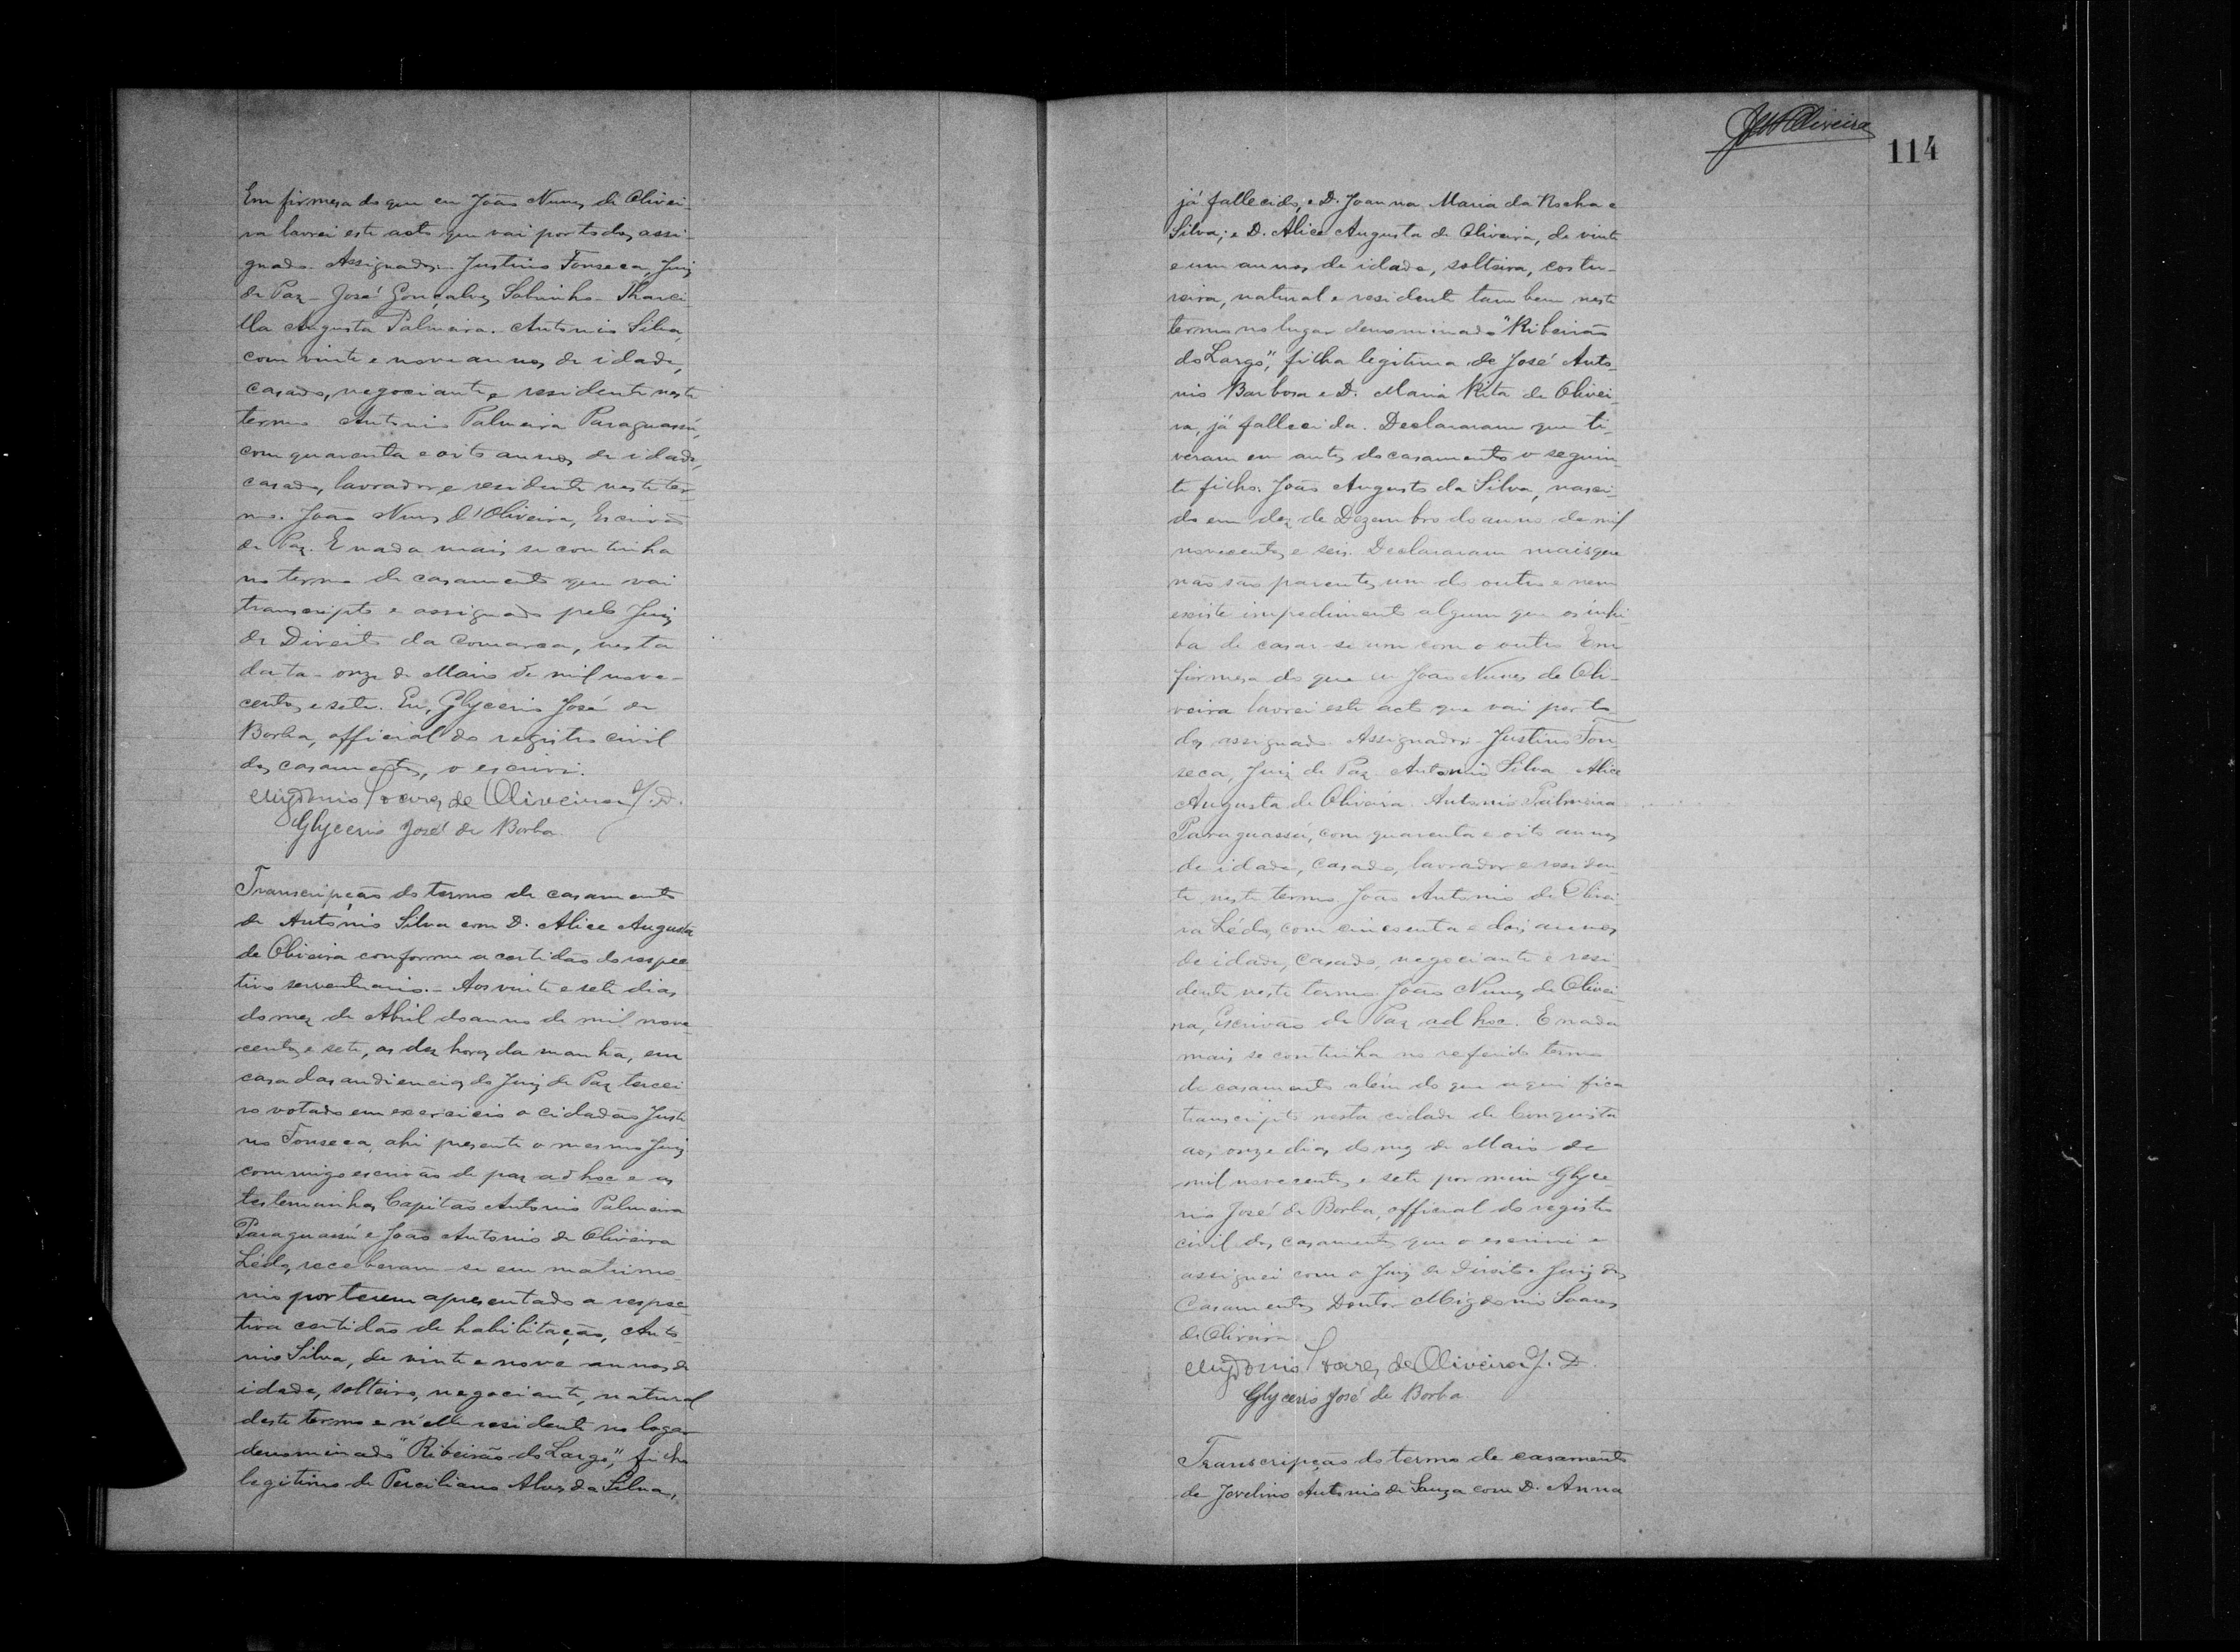 Em firmesa do que eu João Nunes de Olivei-
ra lavrei este acto que vai por todos assi-
gnado. Assignados:- Justino Fonseca, Juiz
de Paz - José Gonçalves Sobrinho - Tharci
lla Augusta Palmeira. Antonio Silva,
com vinte e nove annos de idade,
casado, negociante, e residente neste
termo Antonio Palmeira Paraguassú,
com quarenta e oito annos de idade,
casado, lavrador e residente neste ter-
mo. João Nunes d'Oliveira, Escrivão
de Paz. E nada mais se continha
no termo de casamento que vai
transcripto e assignado pelo Juiz
de Direito da Comarca, nesta
data - onze de Maio de mil nove-
centos e sete. Eu, Glycerio José de
Borba, official do registro civil
dos casamentos, o escrivi.
Migdonio Soares de Oliveira J. D.
Glycerio José de Borba
Transcripção do termo de casamento
de Antonio Silva com D. Alice Augusta
de Oliveira conforme a certidão do respec
tivo serventuario. - Aos vinte e sete dias
do mez de Abril do anno de mil nove-
centos e sete, as dez horas da manhã, em
casa das audiencias do Juiz de Paz tercei
ro votado em exercicio o cidadão Justi
no Fonseca, ahi presente o mesmo Juiz
commigo escrivão de paz ad hoc e as
testemunhas Capitão Antonio Palmeira
Paraguassú e João Antonio de Oliveira
Lédo, receberam-se em matrimo-
nio por terem apresentado a respec-
tiva certidão de habilitação, Anto-
nio Silva, de vinte e nove annos de
idade, solteiro, negociante, natural
deste termo e n'elle residente no logar
denominado "Ribeirão do Largo", filho
legitimo de Perciliano Alves da Silva,
114
já fallecido, e D. Joanna Maria da Rocha e
Silva; e D. Alice Augusta de Oliveira, de vinte
e um annos de idade, solteira, costu-
reira, natural e residente tambem neste
termo no lugar denominado "Ribeirão
do Largo", filha legitima de José Anto-
nio Barbosa e D. Maria Rita de Olivei-
ra, já fallecida. Declararam que ti-
veram em antes do casamento o seguin-
te filho: João Augusto da Silva, nasci-
do em dez de Dezembro do anno de mil
novecentos e seis. Declararam mais que
não são parentes um do outro e nem
existe impedimento algum que os inhi-
ba de casar-se um com o outro Em
firmesa do que eu João Nunes de Oli-
veira lavrei este acto que vai por to-
dos assignado. Assignados:- Justino Fon-
seca, Juiz de Paz. Antonio Silva Alice
Augusta de Oliveira. Antonio Palmeira
Paraguassú, com quarenta e oito annos
de idade, casado, lavrador e residen-
te neste termo João Antonio de Olivei-
ra Lédo, com cincoenta e dois annos
de idade, casado, negociante e resi-
dente neste termo João Nunes de Olivei-
ra, Escrivão de Paz ad hoc. E nada
mais se continha no referido termo
de casamento além do que aqui fica
transcripto nesta cidade de Conquista
aos onze dias do mez de Maio de
mil novecentos e sete por mim Glyce-
rio José de Borba, official do registro
civil dos casamentos que o escrivi e
assignei com o Juiz de Direito e Juiz dos
Casamentos Doutor Migdonio Soares
de Oliveira
Migdonio Soares de Oliveira J. D.
Glycerio José de Borba
Transcripção do termo de casamento
de Jovelino Antonio de Souza com D. Anna